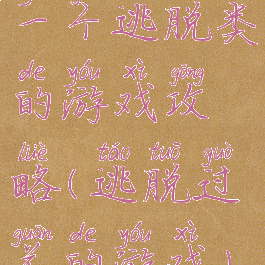 一个逃脱类
de yóu xì gōng
的游戏攻
lüè táo tuō guò
略(逃脱过
guān de yóu xì
关的游戏)